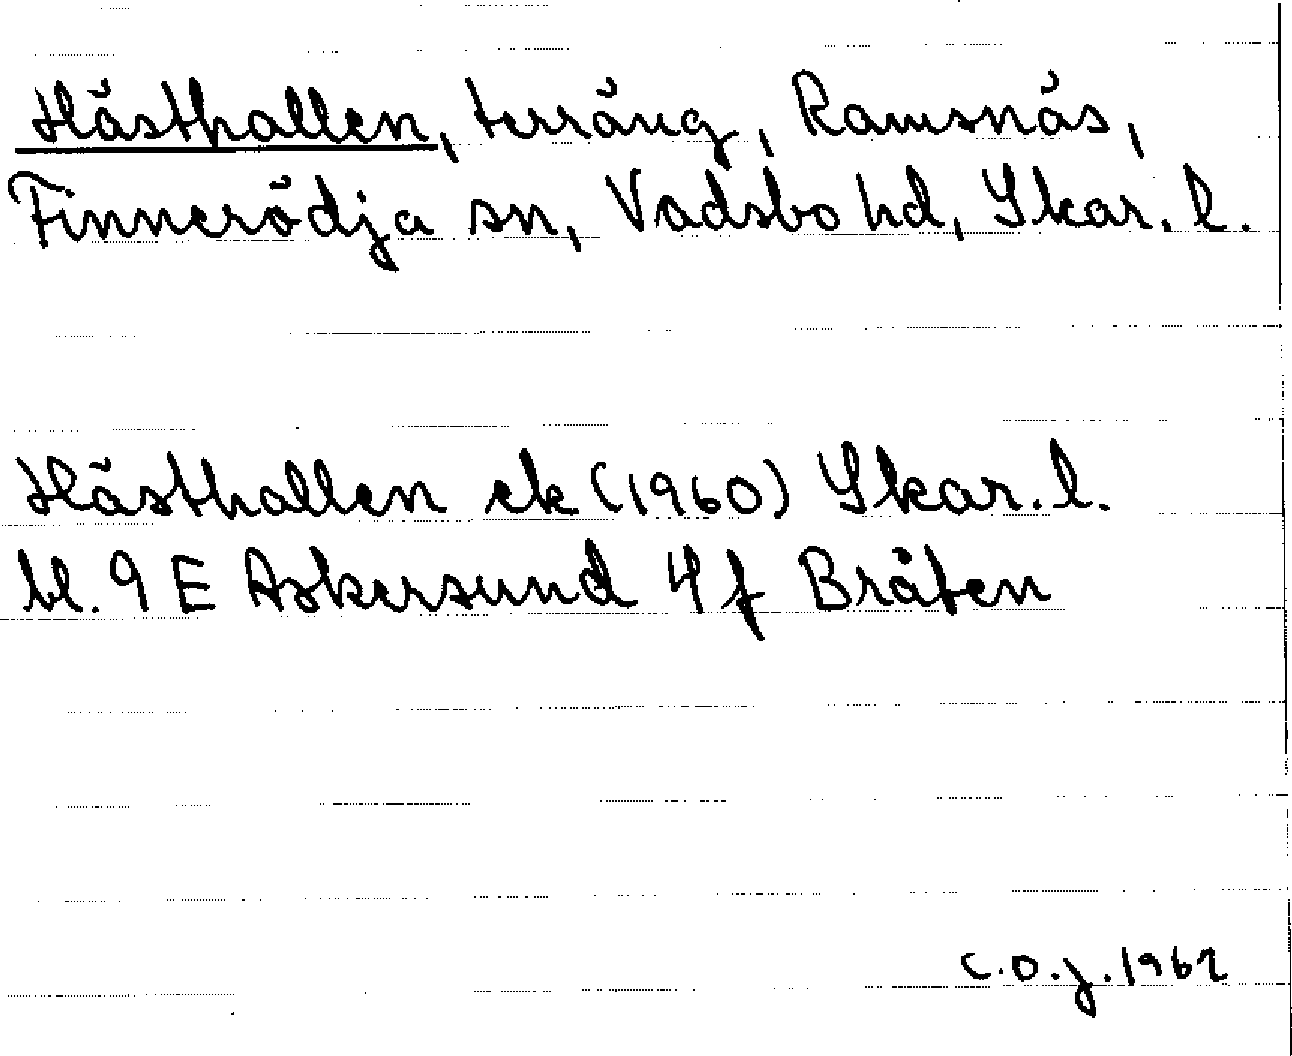 Hästhallen, terräng, Ramsnäs,
Finnerödja sn, Vadsbo hd, Skar. l.
Hästhallen ek (1960) Skar. l.
bl. 9 E Askersund 4 f Bråten
C.O.J. 1962